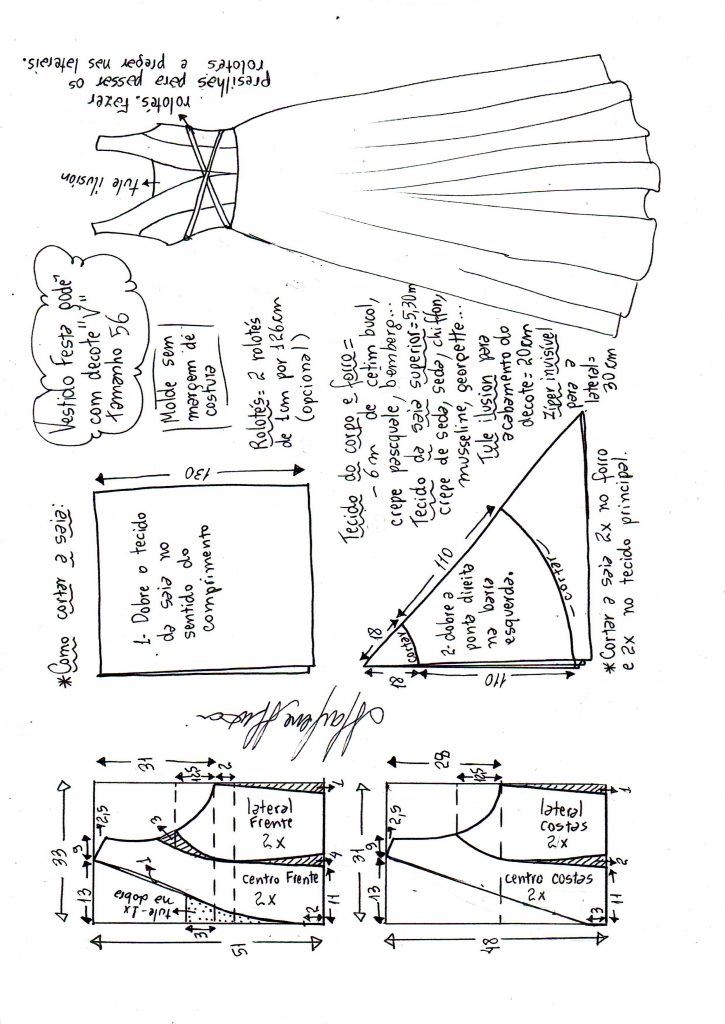 Vestido Festa pode
com decote "V"
tamanho 56
Molde sem
margem de
costura
Rolotês= 2 rolotês
de 1cm por 126cm
(opcional)
Tecido do corpo e forro=
- 6m de cetim bucol,
crepe pasquale, bemberg...
Tecido da saia superior=5,30m
crepe de seda, seda, chiffon,
musseline, georgette...
Tule ilusion para
acabamento do
decote= 20cm
Zíper invisível
para a
lateral=
30cm
tule ilusion
rolotês. Fazer
presilhas para passar os
rolotês e pregar nas laterais.
*Como cortar a saia:
130
1- Dobre o tecido
da saia no
sentido do
comprimento
18
110
cortar
18
110
2- dobre a
ponta direita
na barra
esquerda.
- cortar -
*Cortar a saia 2x no forro
e 2x no tecido principal.
33
13
9
2,5
31
12,5
2
3
1
lateral
Frente
2x
centro Frente
2x
tule-1x
na dobra
3
2
11
4
1
51
31
13
9
2,5
28
12,5
lateral
costas
2x
centro costas
2x
3
11
2
1
48